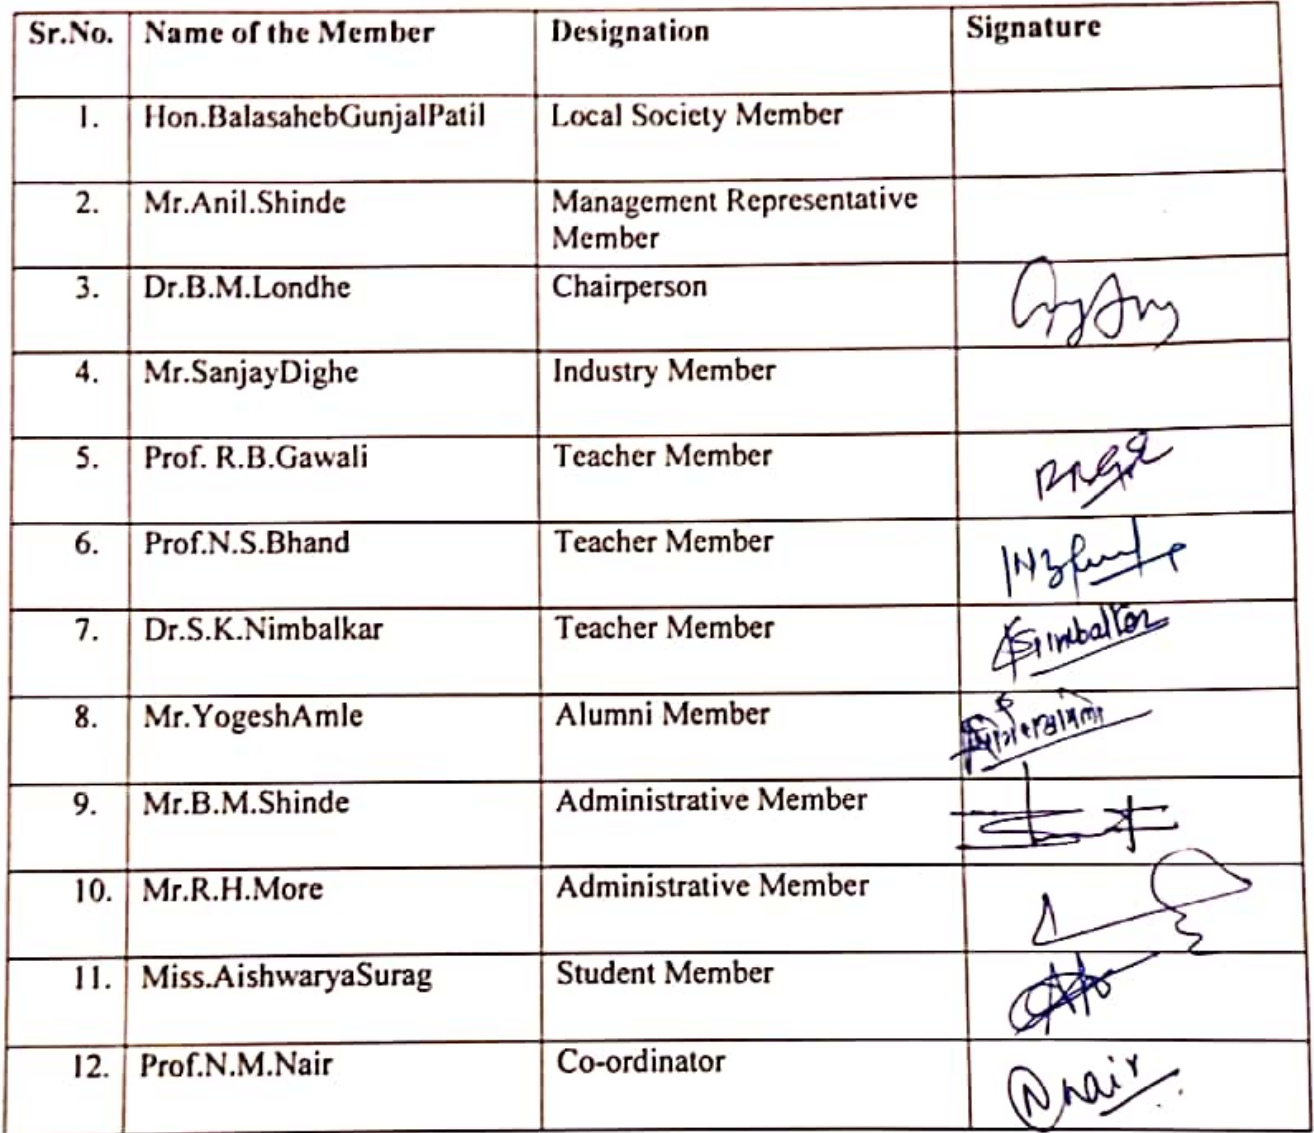 Sr.No. Name of the Member Designation Signature
1. Hon.BalasahebGunjalPatil Local Society Member
2. Mr.Anil.Shinde Management Representative
Member
3. Dr.B.M.Londhe Chairperson
4. Mr.SanjayDighe Industry Member
5. Prof. R.B.Gawali Teacher Member
6. Prof.N.S.Bhand Teacher Member
7. Dr.S.K.Nimbalkar Teacher Member
8. Mr.YogeshAmle Alumni Member
9. Mr.B.M.Shinde Administrative Member
10. Mr.R.H.More Administrative Member
11. Miss.AishwaryaSurag Student Member
12. Prof.N.M.Nair Co-ordinator Nnair